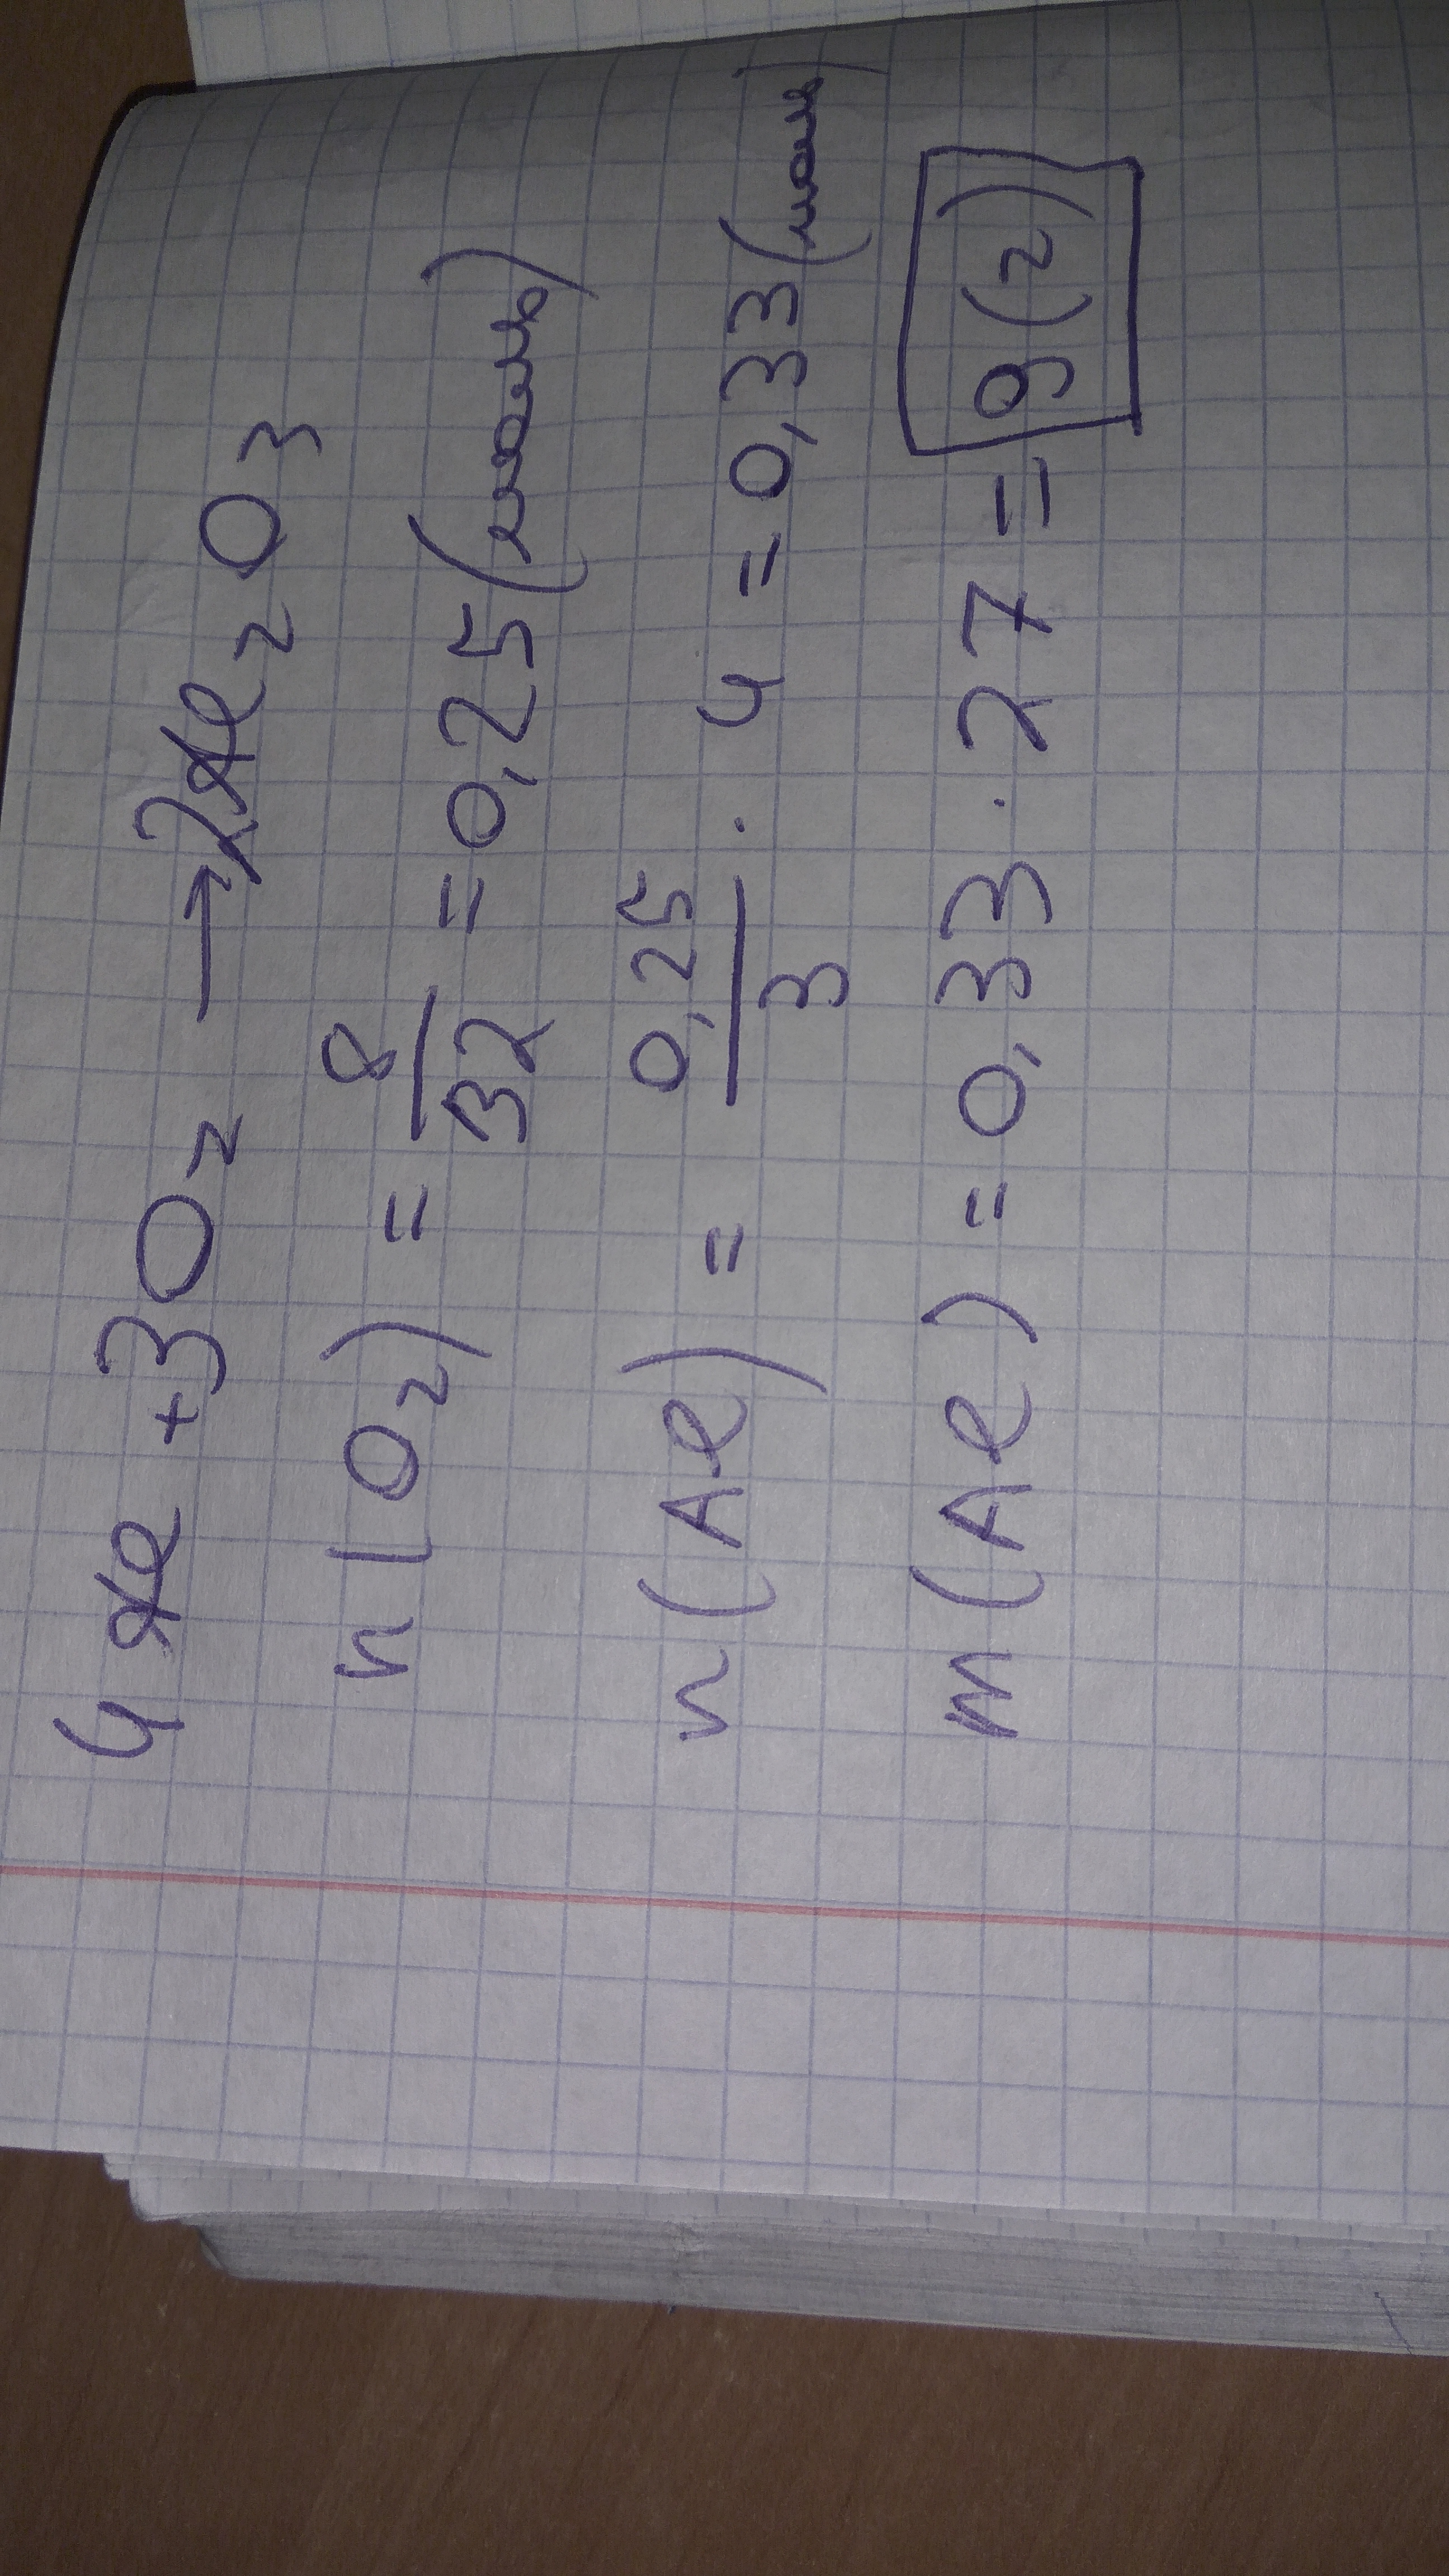 4Al + 3O₂ → 2Al₂O₃
n(O₂) = 8/32 = 0,25 (моль)
n(Al) = 0,25/3 · 4 = 0,33 (моль)
m(Al) = 0,33 · 27 = 9 (г)